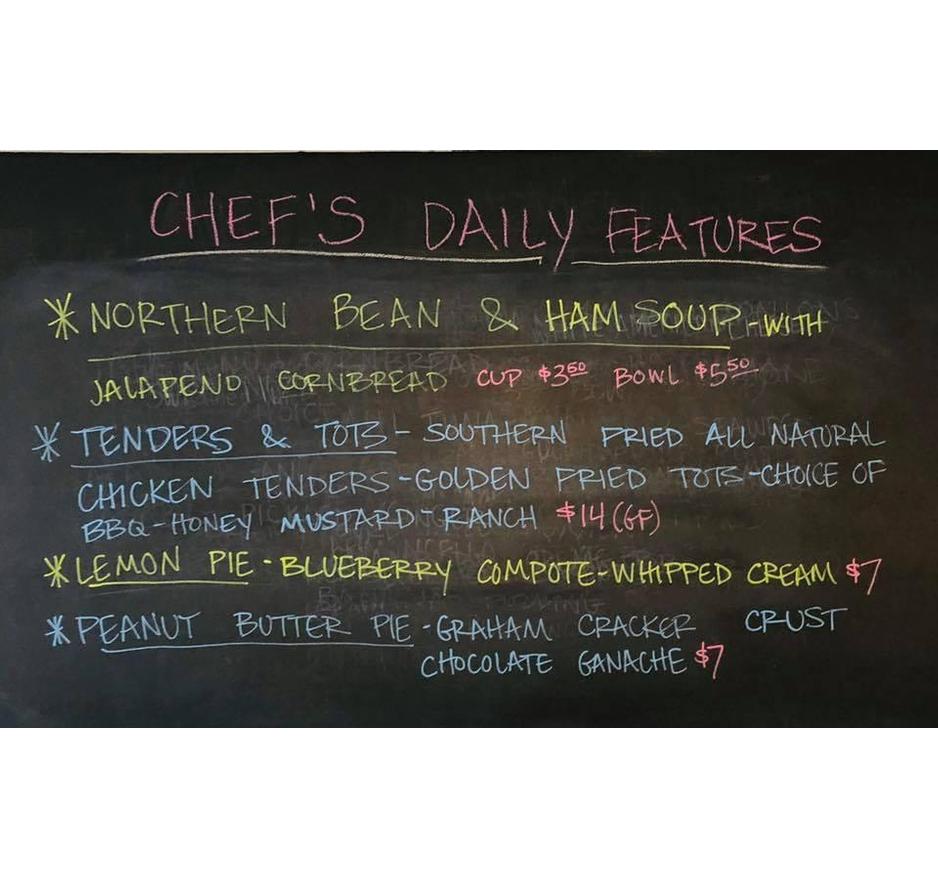 CHEF'S DAILY FEATURES
* NORTHERN BEAN & HAM SOUP - WITH
JALAPENO CORNBREAD CUP $3.50 BOWL $5.50
* TENDERS & TOTS - SOUTHERN FRIED ALL NATURAL
CHICKEN TENDERS - GOLDEN FRIED TOTS - CHOICE OF
BBQ - HONEY MUSTARD - RANCH $14 (GF)
* LEMON PIE - BLUEBERRY COMPOTE - WHIPPED CREAM $7
* PEANUT BUTTER PIE - GRAHAM CRACKER CRUST
CHOCOLATE GANACHE $7